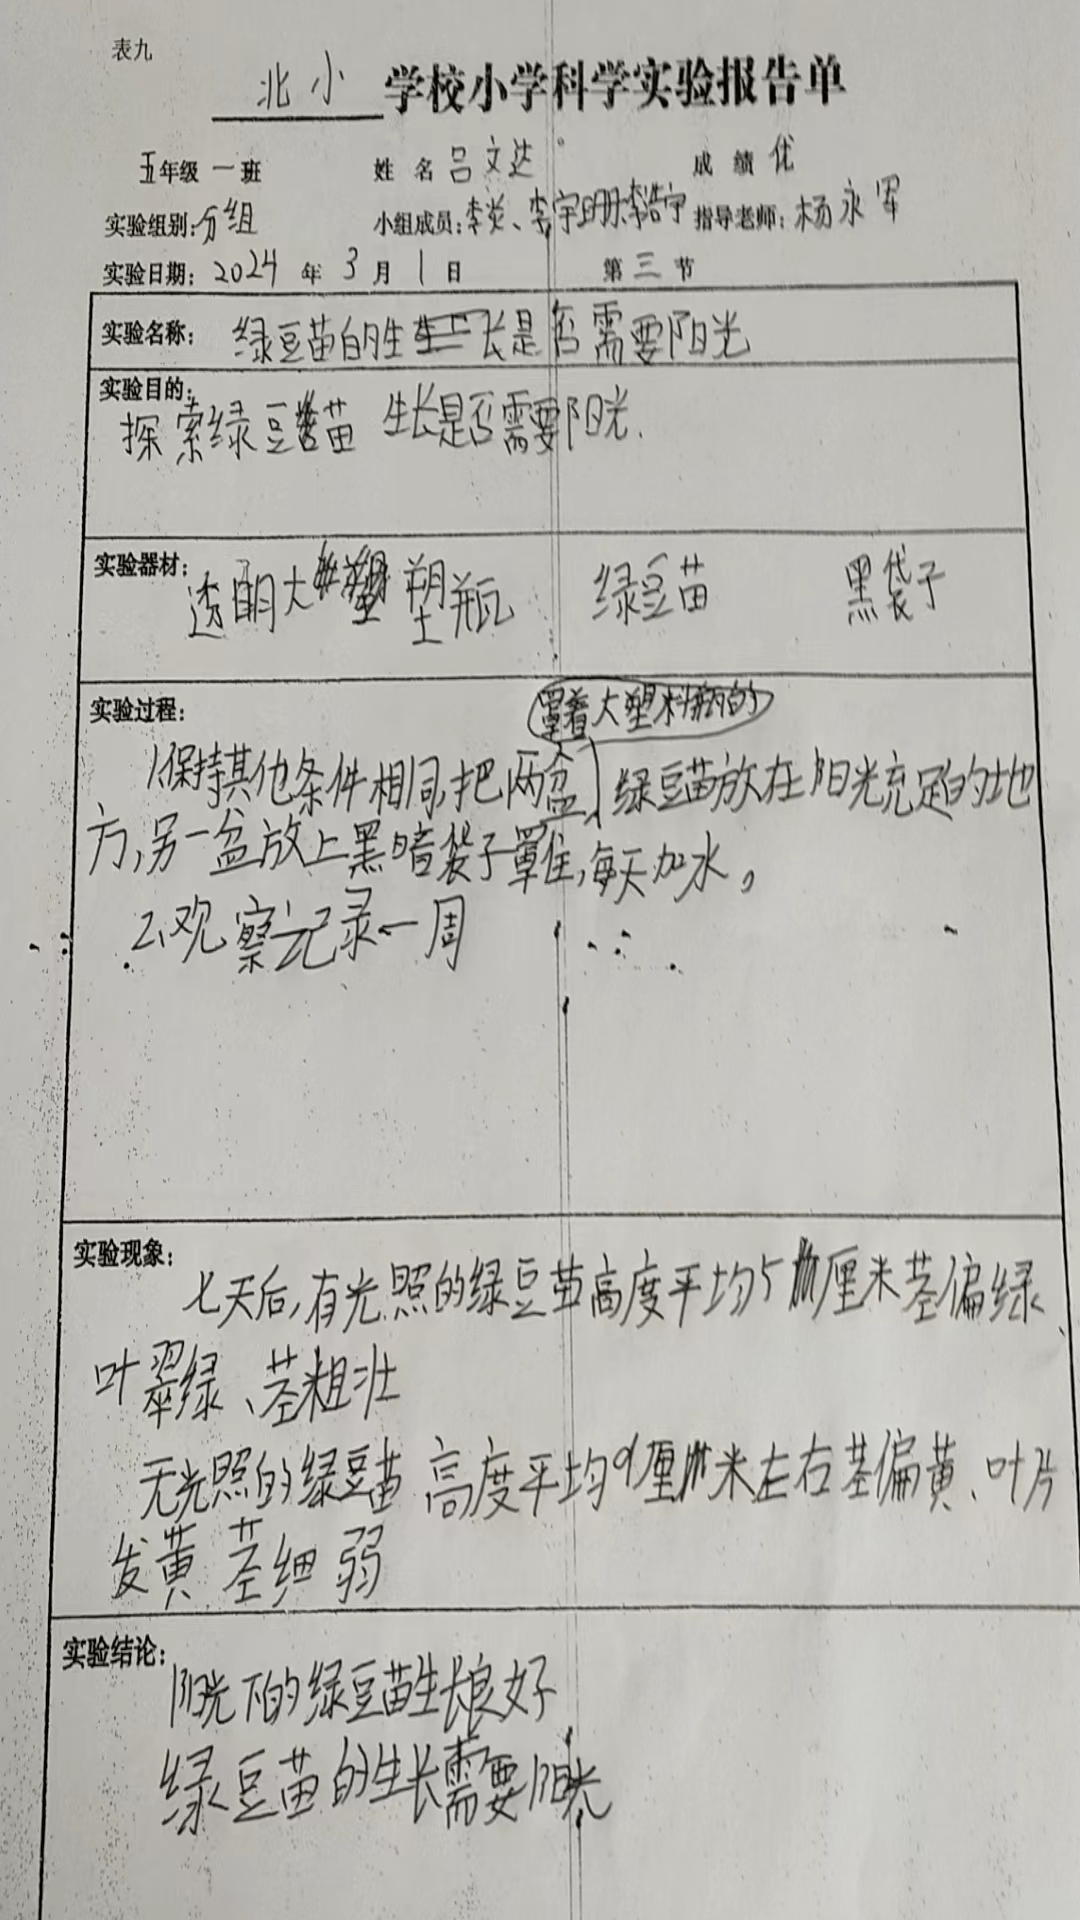 表九
北小 学校小学科学实验报告单
五年级 一 班 姓名 吕文达 成绩 优
实验组别: 分组 小组成员: 李炎、李宇珊、李浩宇 指导老师: 杨永军
实验日期: 2024 年 3 月 1 日 第 三 节
实验名称: 绿豆苗的生长是否需要阳光
实验目的:
探索绿豆苗 生长是否需要阳光.
实验器材: 透明大塑瓶 绿豆苗 黑袋子
实验过程: 罩着大塑料瓶的
1.保持其他条件相同,把两盆绿豆苗放在阳光充足的地
方,另一盆放上黑暗袋子罩住,每天加水。
2、观察记录一周
实验现象:
七天后,有光照的绿豆苗高度平均5厘米茎偏绿、
叶翠绿、茎粗壮
无光照的绿豆苗 高度平均9厘米左右茎偏黄、叶片
发黄 茎细弱
实验结论:
阳光下的绿豆苗生长良好
绿豆苗的生长需要阳光